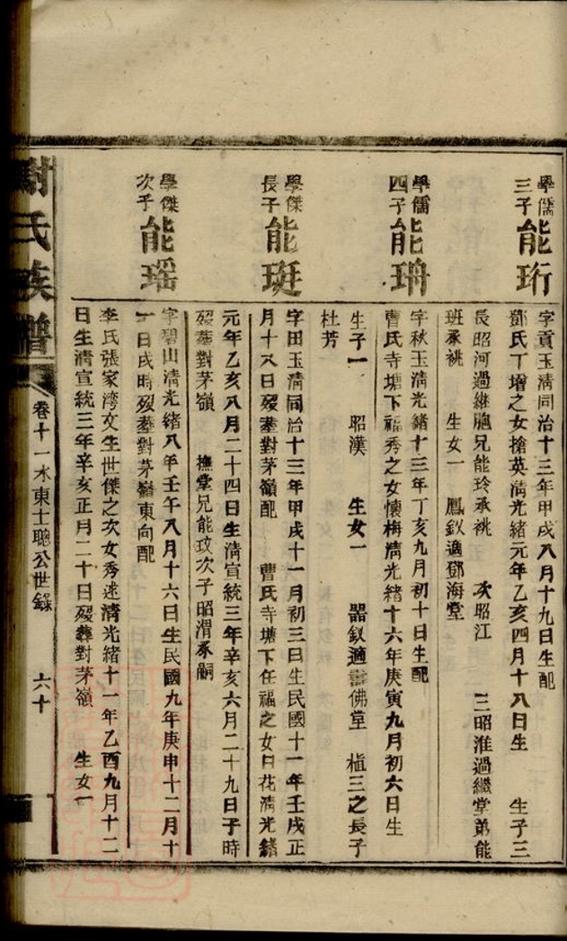 學儒
三子
能珩
字貢玉清同治十三年甲戌八月十九日生配
鄧氏丁增之女搶英清光緒元年乙亥四月十八日生 生子三
長昭河過維胞兄能玲承祧 次昭江 三昭淮過繼堂弟能
班承祧 生女一 鳳釵適鄧海堂
學儒
四子
能珊
字秋玉清光緒十三年丁亥九月初十日生配
曹氏寺塘下福秀之女懷梅清光緒十六年庚寅九月初六日生
生子一 昭漢 生女一 器釵適 佛堂 植三之長子
杜芳
學傑
長子
能珽
字田玉清同治十三年甲戌十一月初三日生民國十一年壬戌正
月十八日歿塟對茅嶺配 曹氏寺塘下任福之女日花清光緒
元年乙亥八月二十四日生清宣統三年辛亥六月二十九日子時
歿塟對茅嶺 撫堂兄能玟次子昭渭承嗣
學傑
次子
能瑶
字碧山清光緒八年壬午八月十六日生民國九年庚申十二月十
一日戌時歿塟對茅嶺東向配
李氏張家湾文生世傑之次女秀述清光緒十一年乙酉九月十二
日生清宣統三年辛亥正月二十日歿葬對茅嶺 生女一
謝氏族譜
卷十一水東士聰公世錄
六十